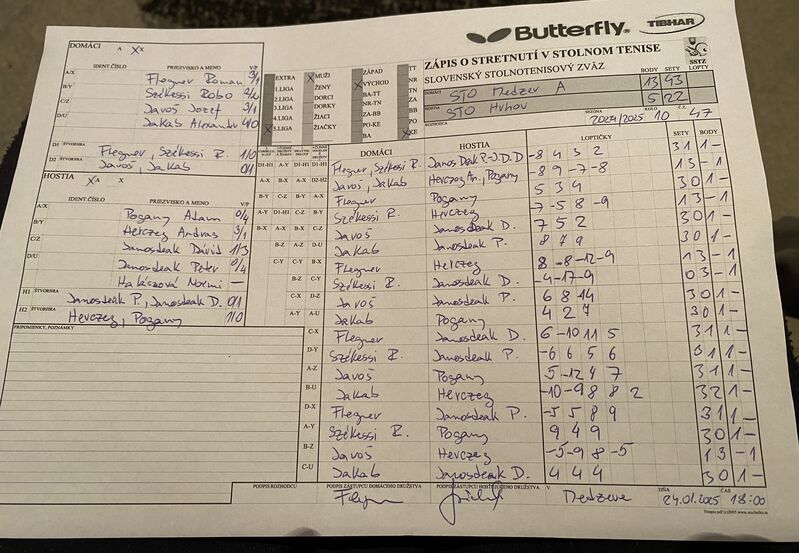 Butterfly
TIBHAR
ZÁPIS O STRETNUTÍ V STOLNOM TENISE
SLOVENSKÝ STOLNOTENISOVÝ ZVÄZ
SSTZ
BODY SETY LOPTY
DOMÁCI STO Medzev A 13 43
HOSTIA STO Hrhov 5 22
ROZHODCA SEZÓNA 2024/2025 KOLO 10 Č.Z. 47
DOMÁCI A X X
IDENT.ČÍSLO PRIEZVISKO A MENO V/P
A/X Flegner Roman 3/1
B/Y Székessi Robo 2/2
C/Z Javoš Jozef 3/1
D/U Jakab Alexander 4/0
D1 ŠTVORHRA Flegner, Székessi R. 1/0
D2 ŠTVORHRA Javoš, Jakab 0/1
HOSTIA X A X
IDENT.ČÍSLO PRIEZVISKO A MENO V/P
A/X Pogany Adam 0/4
B/Y Herczeg Andras 3/1
C/Z Janosdeak Dávid 1/3
D/U Janosdeak Peter 0/4
Halászová Noemi —
H1 ŠTVORHRA Janosdeak P., Janosdeak D. 0/1
H2 ŠTVORHRA Herczeg, Pogany 1/0
PRIPOMIENKY, POZNÁMKY
EXTRA X MUŽI ZÁPAD TT
1.LIGA ŽENY X VÝCHOD NR
2.LIGA DORCI BA-TT TN
3.LIGA DORKY NR-TN ZA
4.LIGA ŽIACI ZA-BB BB
X 5.LIGA ŽIAČKY PO-KE PO
BA X KE
DOMÁCI HOSTIA LOPTIČKY SETY BODY
Flegner, Székessi R. Janos Deak P.-J.D.D -8 4 3 2 3 1 1 -
Javoš, Jakab Herczeg An., Pogany -8 9 -7 -8 1 3 - 1
Flegner Pogany 5 3 4 3 0 1 -
Székessi R. Herczeg -7 -5 8 -9 1 3 - 1
Javoš Janosdeak D. 7 5 2 3 0 1 -
Jakab Janosdeak P. 8 7 9 3 0 1 -
Flegner Herczeg 8 -8 -12 -9 1 3 - 1
Székessi R. Janosdeak D. -4 -17 -9 0 3 - 1
Javoš Janosdeak P. 6 8 14 3 0 1 -
Jakab Pogany 4 2 7 3 0 1 -
Flegner Janosdeak D. 6 -10 11 5 3 1 1 -
Székessi R. Janosdeak P. -6 6 5 6 3 1 1 -
Javoš Pogany 5 -12 4 7 3 1 1 -
Jakab Herczeg -10 -9 8 8 2 3 2 1 -
Flegner Janosdeak P. -5 5 8 9 3 1 1 -
Székessi R. Pogany 9 4 9 3 0 1 -
Javoš Herczeg -5 -9 8 -5 1 3 - 1
Jakab Janosdeak D. 4 4 4 3 0 1 -
PODPIS ROZHODCU PODPIS ZÁSTUPCU DOMÁCEHO DRUŽSTVA PODPIS ZÁSTUPCU HOSŤUJÚCEHO DRUŽSTVA V Medzeve DŇA 24.01.2025 ČAS 18:00